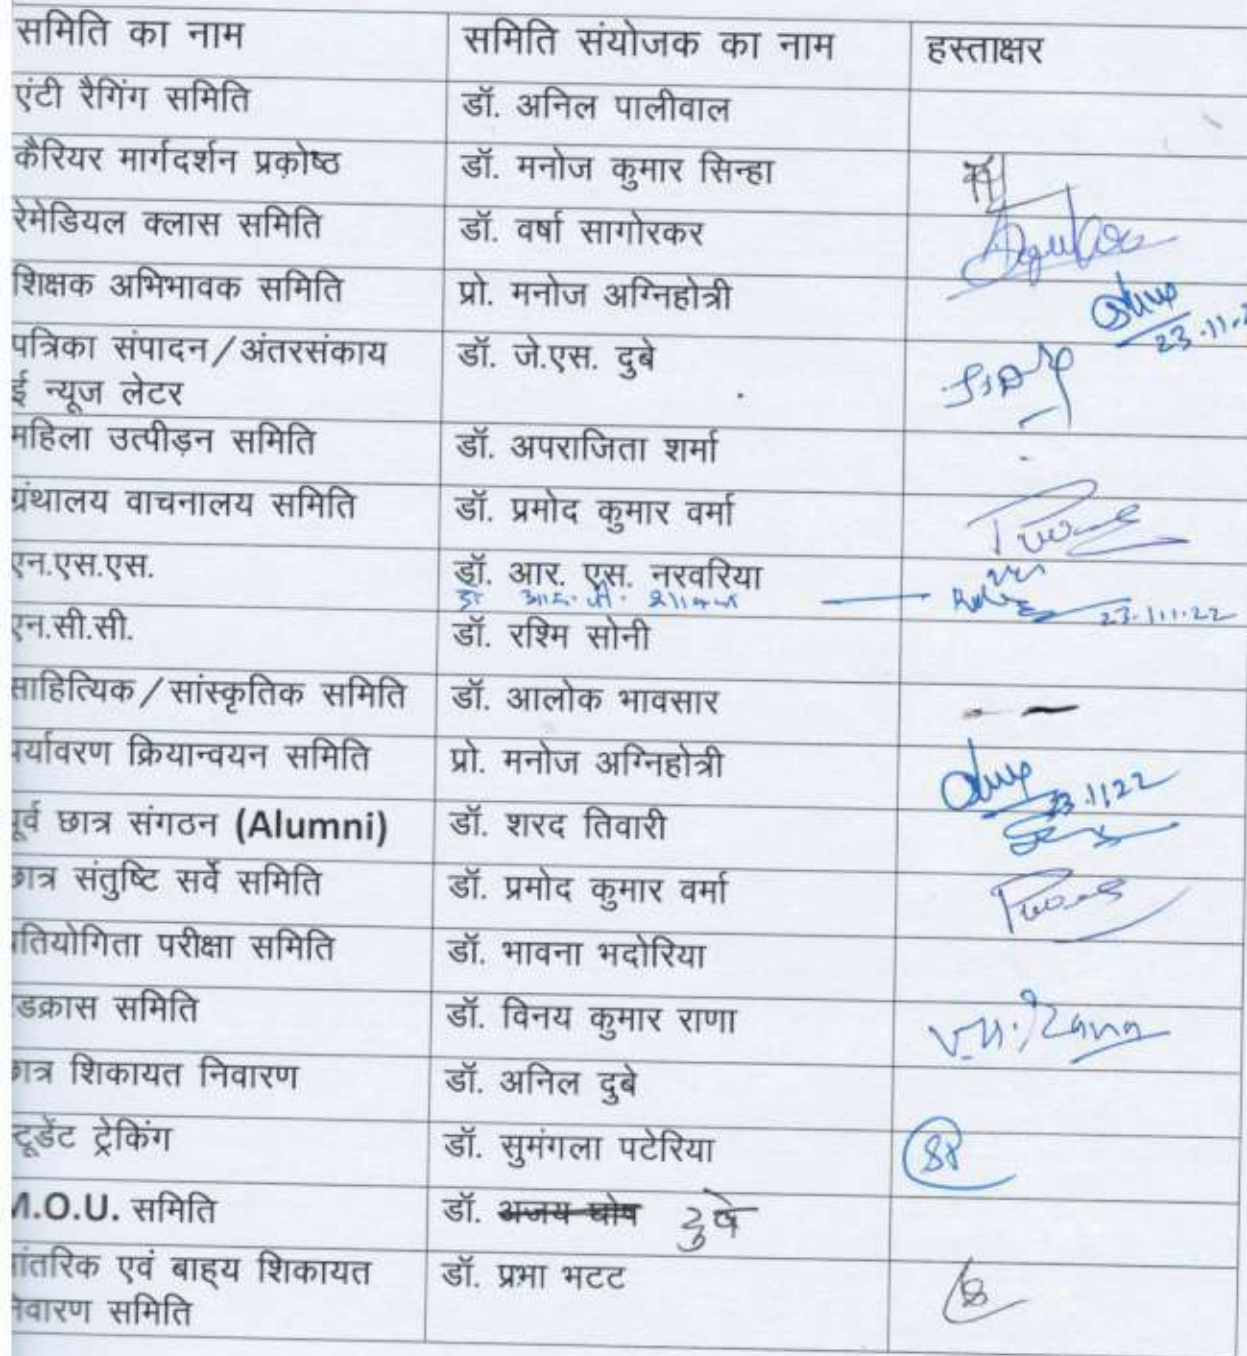 समिति का नाम समिति संयोजक का नाम हस्ताक्षर
एंटी रैगिंग समिति डॉ. अनिल पालीवाल
कैरियर मार्गदर्शन प्रकोष्ठ डॉ. मनोज कुमार सिन्हा
रेमेडियल क्लास समिति डॉ. वर्षा सागोरकर
शिक्षक अभिभावक समिति प्रो. मनोज अग्निहोत्री
23.11.2
पत्रिका संपादन/अंतरसंकाय डॉ. जे.एस. दुबे
ई न्यूज लेटर
महिला उत्पीड़न समिति डॉ. अपराजिता शर्मा
ग्रंथालय वाचनालय समिति डॉ. प्रमोद कुमार वर्मा
एन.एस.एस. डॉ. आर. एस. नरवरिया
23.11.22
एन.सी.सी. डॉ. रश्मि सोनी
साहित्यिक/सांस्कृतिक समिति डॉ. आलोक भावसार
पर्यावरण क्रियान्वयन समिति प्रो. मनोज अग्निहोत्री
23.1122
पूर्व छात्र संगठन (Alumni) डॉ. शरद तिवारी
छात्र संतुष्टि सर्वे समिति डॉ. प्रमोद कुमार वर्मा
तियोगिता परीक्षा समिति डॉ. भावना भदोरिया
डक्रास समिति डॉ. विनय कुमार राणा V.K. Rana
छात्र शिकायत निवारण डॉ. अनिल दुबे
टूडेंट ट्रेकिंग डॉ. सुमंगला पटेरिया SP
M.O.U. समिति डॉ. अजय घोष दुबे
ांतरिक एवं बाह्य शिकायत डॉ. प्रभा भटट
निवारण समिति